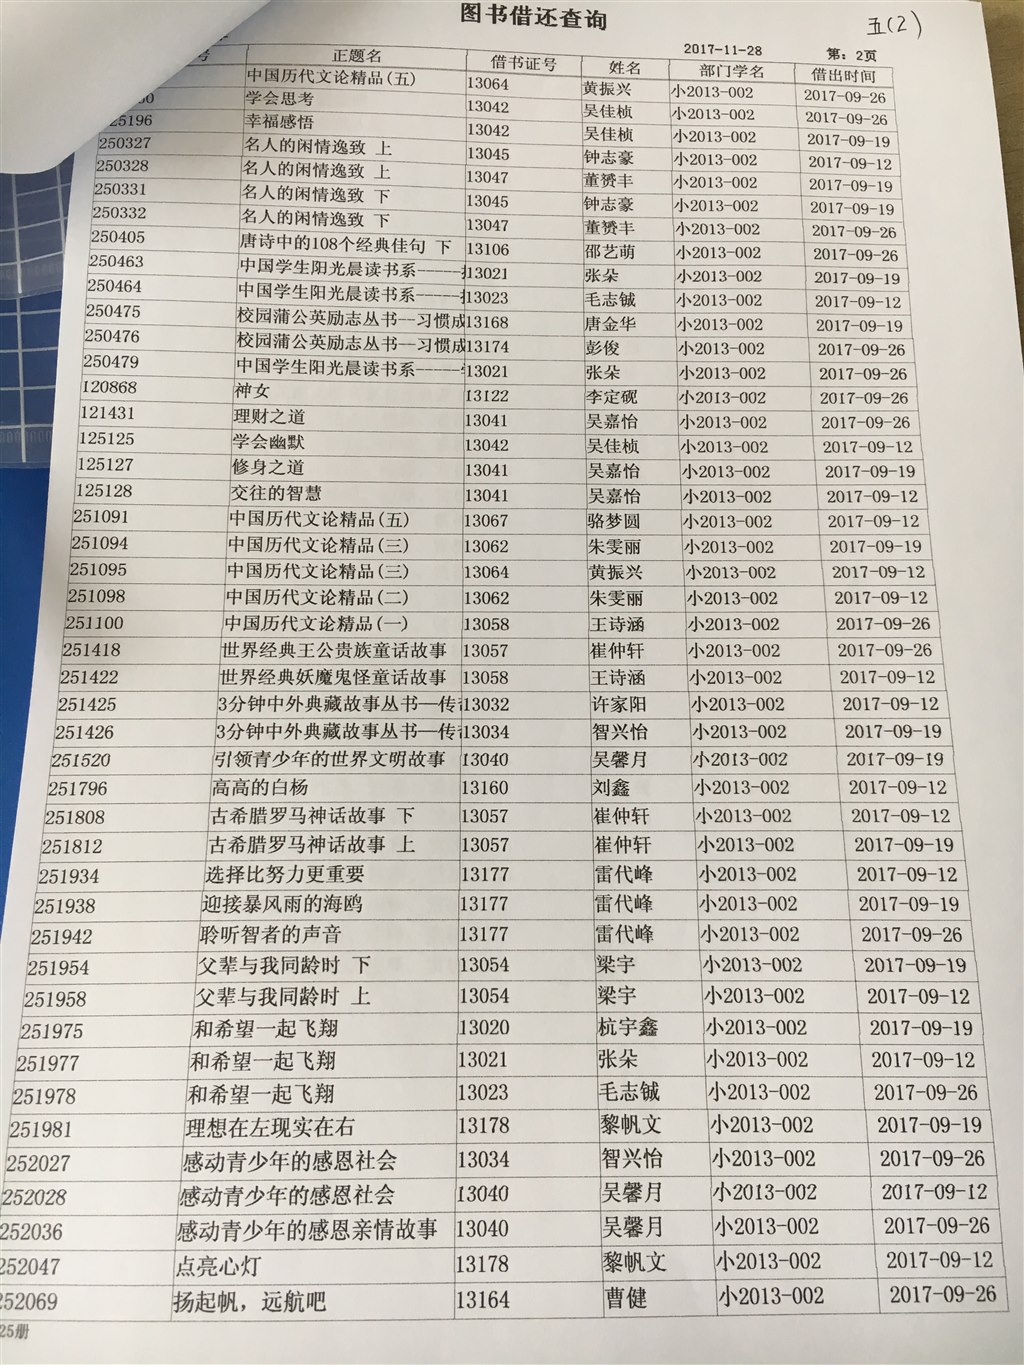 图书借还查询
五(2)
2017-11-28 第：2页
号 正题名 借书证号 姓名 部门学名 借出时间
中国历代文论精品(五) 13064 黄振兴 小2013-002 2017-09-26
学会思考 13042 吴佳桢 小2013-002 2017-09-26
25196 幸福感悟 13042 吴佳桢 小2013-002 2017-09-19
250327 名人的闲情逸致 上 13045 钟志豪 小2013-002 2017-09-12
250328 名人的闲情逸致 上 13047 董赟丰 小2013-002 2017-09-19
250331 名人的闲情逸致 下 13045 钟志豪 小2013-002 2017-09-19
250332 名人的闲情逸致 下 13047 董赟丰 小2013-002 2017-09-26
250405 唐诗中的108个经典佳句 下 13106 邵艺萌 小2013-002 2017-09-26
250463 中国学生阳光晨读书系----- 13021 张朵 小2013-002 2017-09-19
250464 中国学生阳光晨读书系----- 13023 毛志铖 小2013-002 2017-09-12
250475 校园蒲公英励志丛书--习惯成 13168 唐金华 小2013-002 2017-09-19
250476 校园蒲公英励志丛书--习惯成 13174 彭俊 小2013-002 2017-09-26
250479 中国学生阳光晨读书系----- 13021 张朵 小2013-002 2017-09-26
120868 神女 13122 李定砚 小2013-002 2017-09-26
121431 理财之道 13041 吴嘉怡 小2013-002 2017-09-26
125125 学会幽默 13042 吴佳桢 小2013-002 2017-09-12
125127 修身之道 13041 吴嘉怡 小2013-002 2017-09-19
125128 交往的智慧 13041 吴嘉怡 小2013-002 2017-09-12
251091 中国历代文论精品(五) 13067 骆梦圆 小2013-002 2017-09-12
251094 中国历代文论精品(三) 13062 朱雯丽 小2013-002 2017-09-19
251095 中国历代文论精品(三) 13064 黄振兴 小2013-002 2017-09-12
251098 中国历代文论精品(二) 13062 朱雯丽 小2013-002 2017-09-12
251100 中国历代文论精品(一) 13058 王诗涵 小2013-002 2017-09-26
251418 世界经典王公贵族童话故事 13057 崔仲轩 小2013-002 2017-09-26
251422 世界经典妖魔鬼怪童话故事 13058 王诗涵 小2013-002 2017-09-12
251425 3分钟中外典藏故事丛书—传奇 13032 许家阳 小2013-002 2017-09-12
251426 3分钟中外典藏故事丛书—传奇 13034 智兴怡 小2013-002 2017-09-19
251520 引领青少年的世界文明故事 13040 吴馨月 小2013-002 2017-09-19
251796 高高的白杨 13160 刘鑫 小2013-002 2017-09-12
251808 古希腊罗马神话故事 下 13057 崔仲轩 小2013-002 2017-09-12
251812 古希腊罗马神话故事 上 13057 崔仲轩 小2013-002 2017-09-19
251934 选择比努力更重要 13177 雷代峰 小2013-002 2017-09-12
251938 迎接暴风雨的海鸥 13177 雷代峰 小2013-002 2017-09-19
251942 聆听智者的声音 13177 雷代峰 小2013-002 2017-09-26
251954 父辈与我同龄时 下 13054 梁宇 小2013-002 2017-09-19
251958 父辈与我同龄时 上 13054 梁宇 小2013-002 2017-09-12
251975 和希望一起飞翔 13020 杭宇鑫 小2013-002 2017-09-19
251977 和希望一起飞翔 13021 张朵 小2013-002 2017-09-12
251978 和希望一起飞翔 13023 毛志铖 小2013-002 2017-09-26
251981 理想在左现实在右 13178 黎帆文 小2013-002 2017-09-19
252027 感动青少年的感恩社会 13034 智兴怡 小2013-002 2017-09-26
252028 感动青少年的感恩社会 13040 吴馨月 小2013-002 2017-09-12
252036 感动青少年的感恩亲情故事 13040 吴馨月 小2013-002 2017-09-26
252047 点亮心灯 13178 黎帆文 小2013-002 2017-09-12
252069 扬起帆，远航吧 13164 曹健 小2013-002 2017-09-26
25册